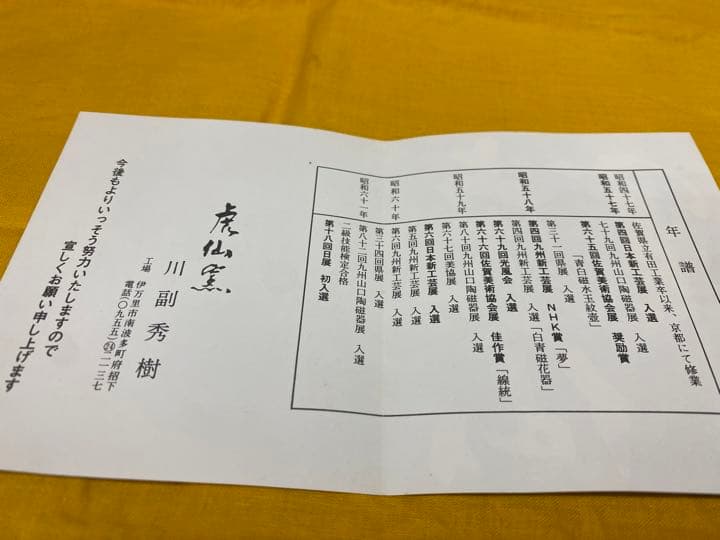 年譜
昭和四十七年
佐賀県立有田工業卒以来、京都にて修業
昭和五十七年
第四回日本新工芸展 入選
七十九回九州山口陶磁器展 奨励賞
第六十五回佐賀美術協会展 入選
「青白磁水玉紋壺」
昭和五十八年
第三十一回県展 入選 「夢」
第四回九州新工芸展 NHK賞
第四回九州新工芸展 入選 「白青磁花器」
第六十九回光風会 入選
第六十六回佐賀美術協会展 佳作賞 「線統」
昭和五十九年
第八十回九州山口陶磁器展 入選
第六十七回美協展 入選
第六回日本新工芸展 入選
第五回九州新工芸展 入選
昭和六十年
第六回九州新工芸展 入選
第三十四回県展 入選
昭和六十一年
第八十二回九州山口陶磁器展 入選
二級技能検定合格
第十八回日展 初入選
虎仙窯
川副秀樹
工場 伊万里市南波多町府招下
電話(〇九五五)㉔二一三七
今後もよりいっそう努力いたしますので
宜しくお願い申し上げます